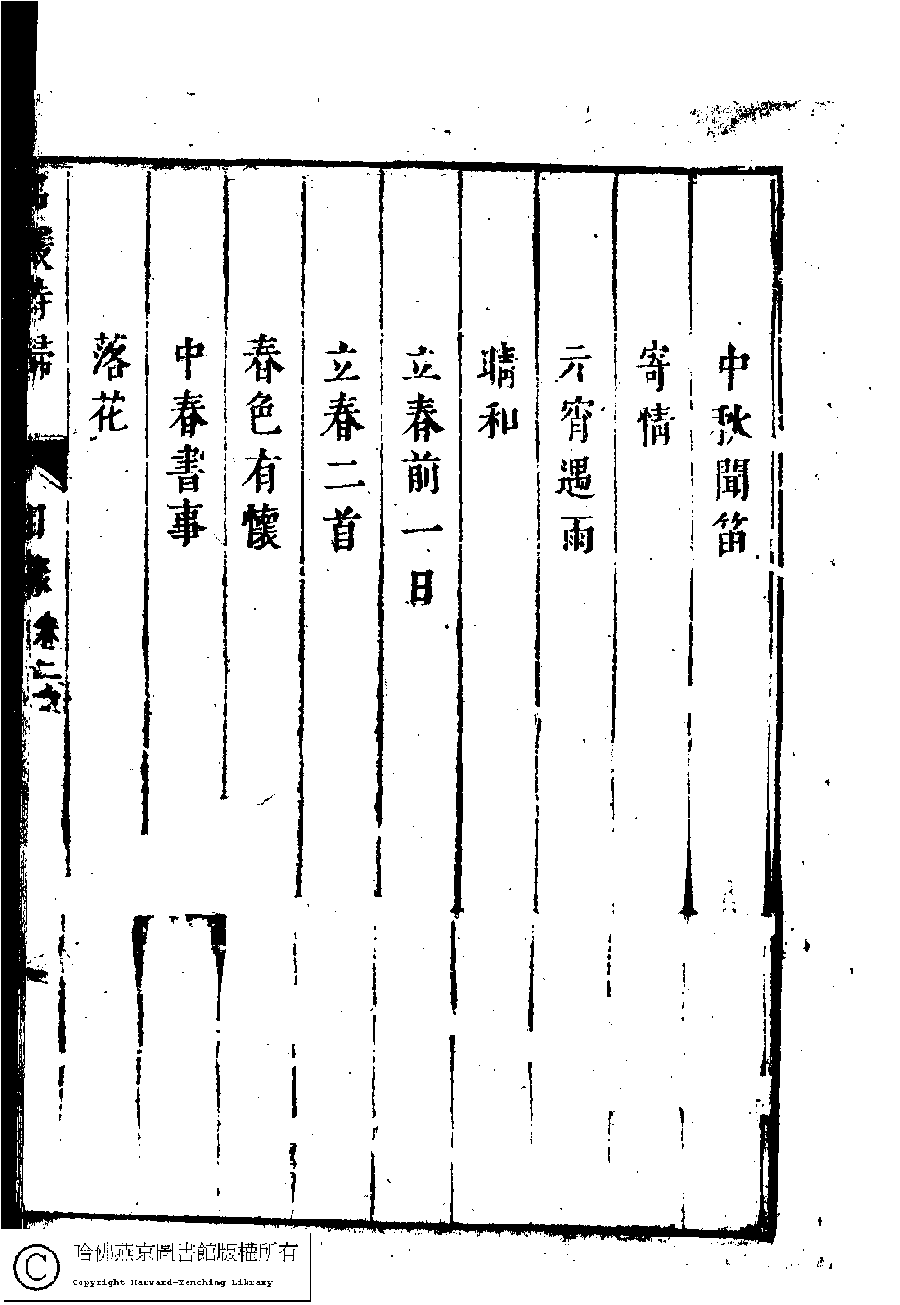 中秋聞笛
寄情
元宵遇雨
晴和
立春前一日
立春二首
春色有懷
中春書事
落花
名媛詩歸
目錄
卷二十
哈佛燕京圖書館版權所有
Copyright Harvard-Yenching Library